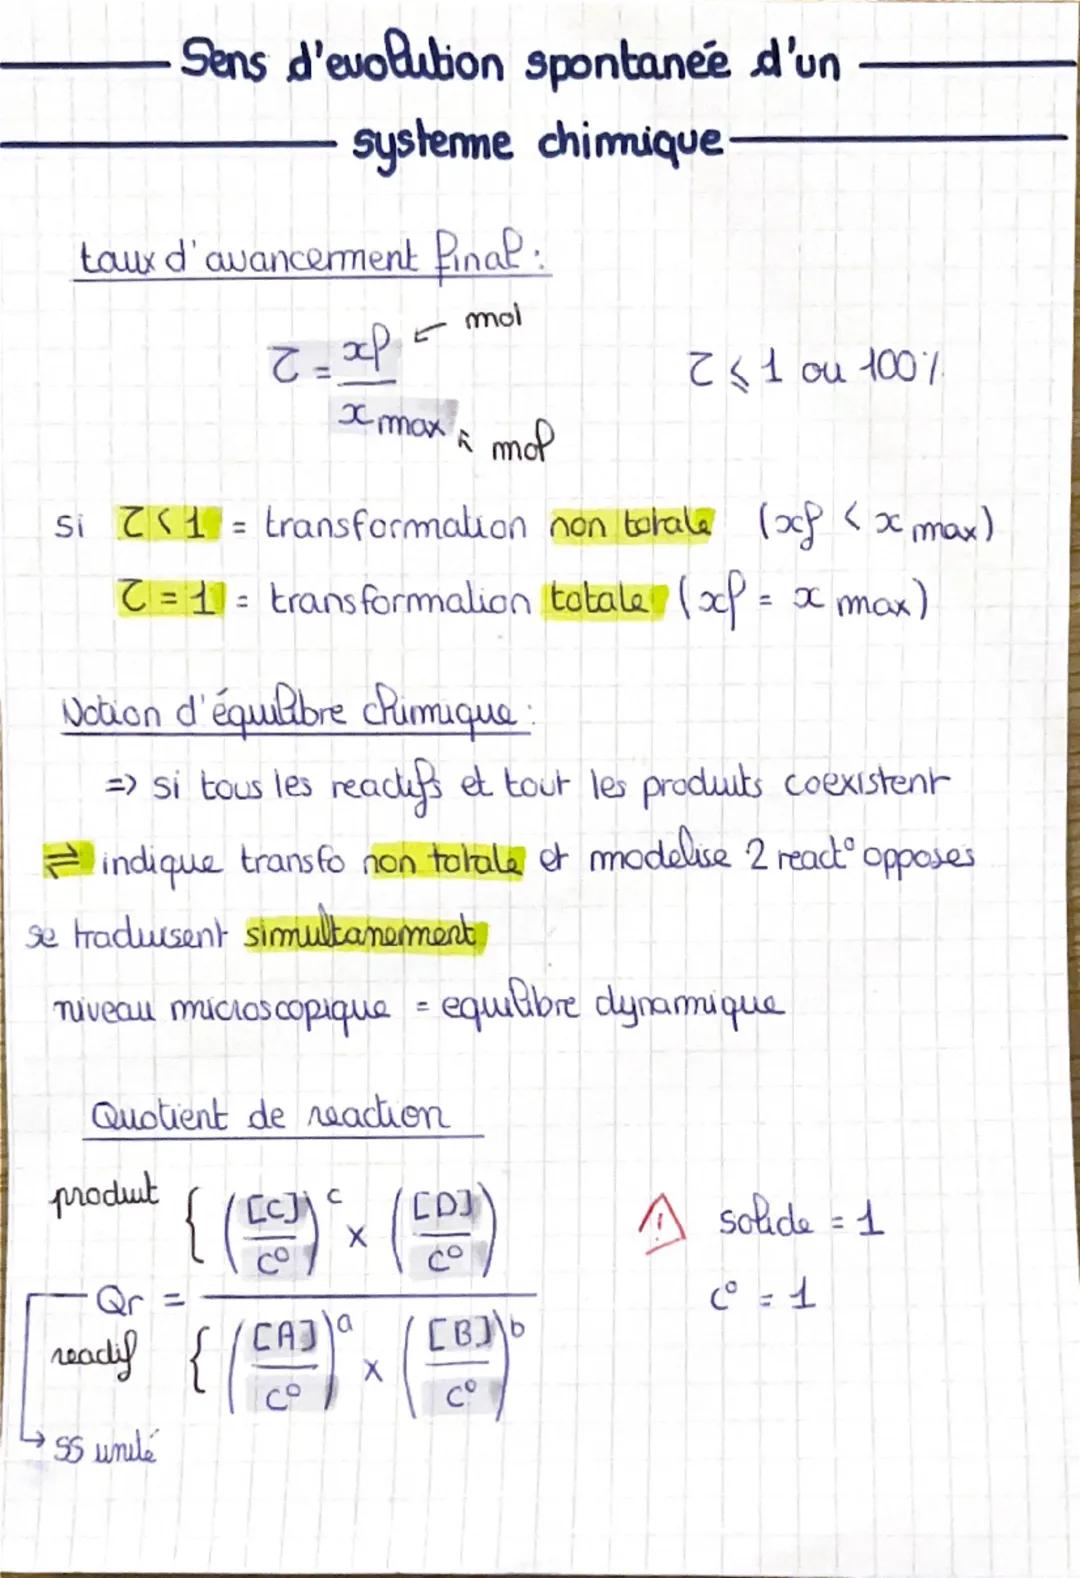 Sens d'evolution spontaneé d'un
systeme chimique
taux d'avancement final :
τ = xf / x max
← mol
↖ mol
τ ⩽ 1 ou 100%
si τ < 1 = transformation non totale (xf < x max)
τ = 1 = transformation totale (xf = x max)
Notion d'équilibre chimique :
=> si tous les reactifs et tout les produits coexistent
⇌ indique transfo non totale et modelise 2 react° opposes
se traduisent simultanement
niveau microscopique = equilibre dynamique
Quotient de reaction
produit { ([C]/C°)^c × ([D]/C°)
Qr =
reactif { ([A]/C°)^a × ([B]/C°)^b
↳ ss unité
⚠ solide = 1
C° = 1